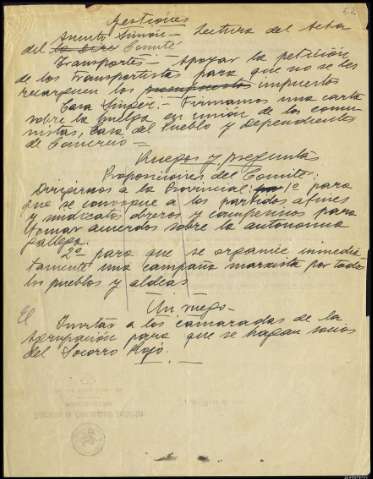 Gestiones
Asunto Simón.- Lectura del Acta
del Comité
Transportes - Apoyar la petición
de los transportistas para que no se les
recarguen los impuestos
Casa Singer.- Firmamos una carta
sobre la huelga en unión de los comu-
nistas, Casa del Pueblo y Dependientes
de Comercio -
Ruegos y preguntas
Proposiciones del Comité:
Dirijirnos a la Provincial: 1º para
que se convoque a los partidos afines
y sindicatos obreros y campesinos para
tomar acuerdos sobre la autonomía
gallega.
2º para que se organice inmedia
tamente una campaña marxista por todos
los pueblos y aldeas
Un ruego -
El
a los camaradas de la
Agrupación para que se hagan socios
del Socorro Rojo.